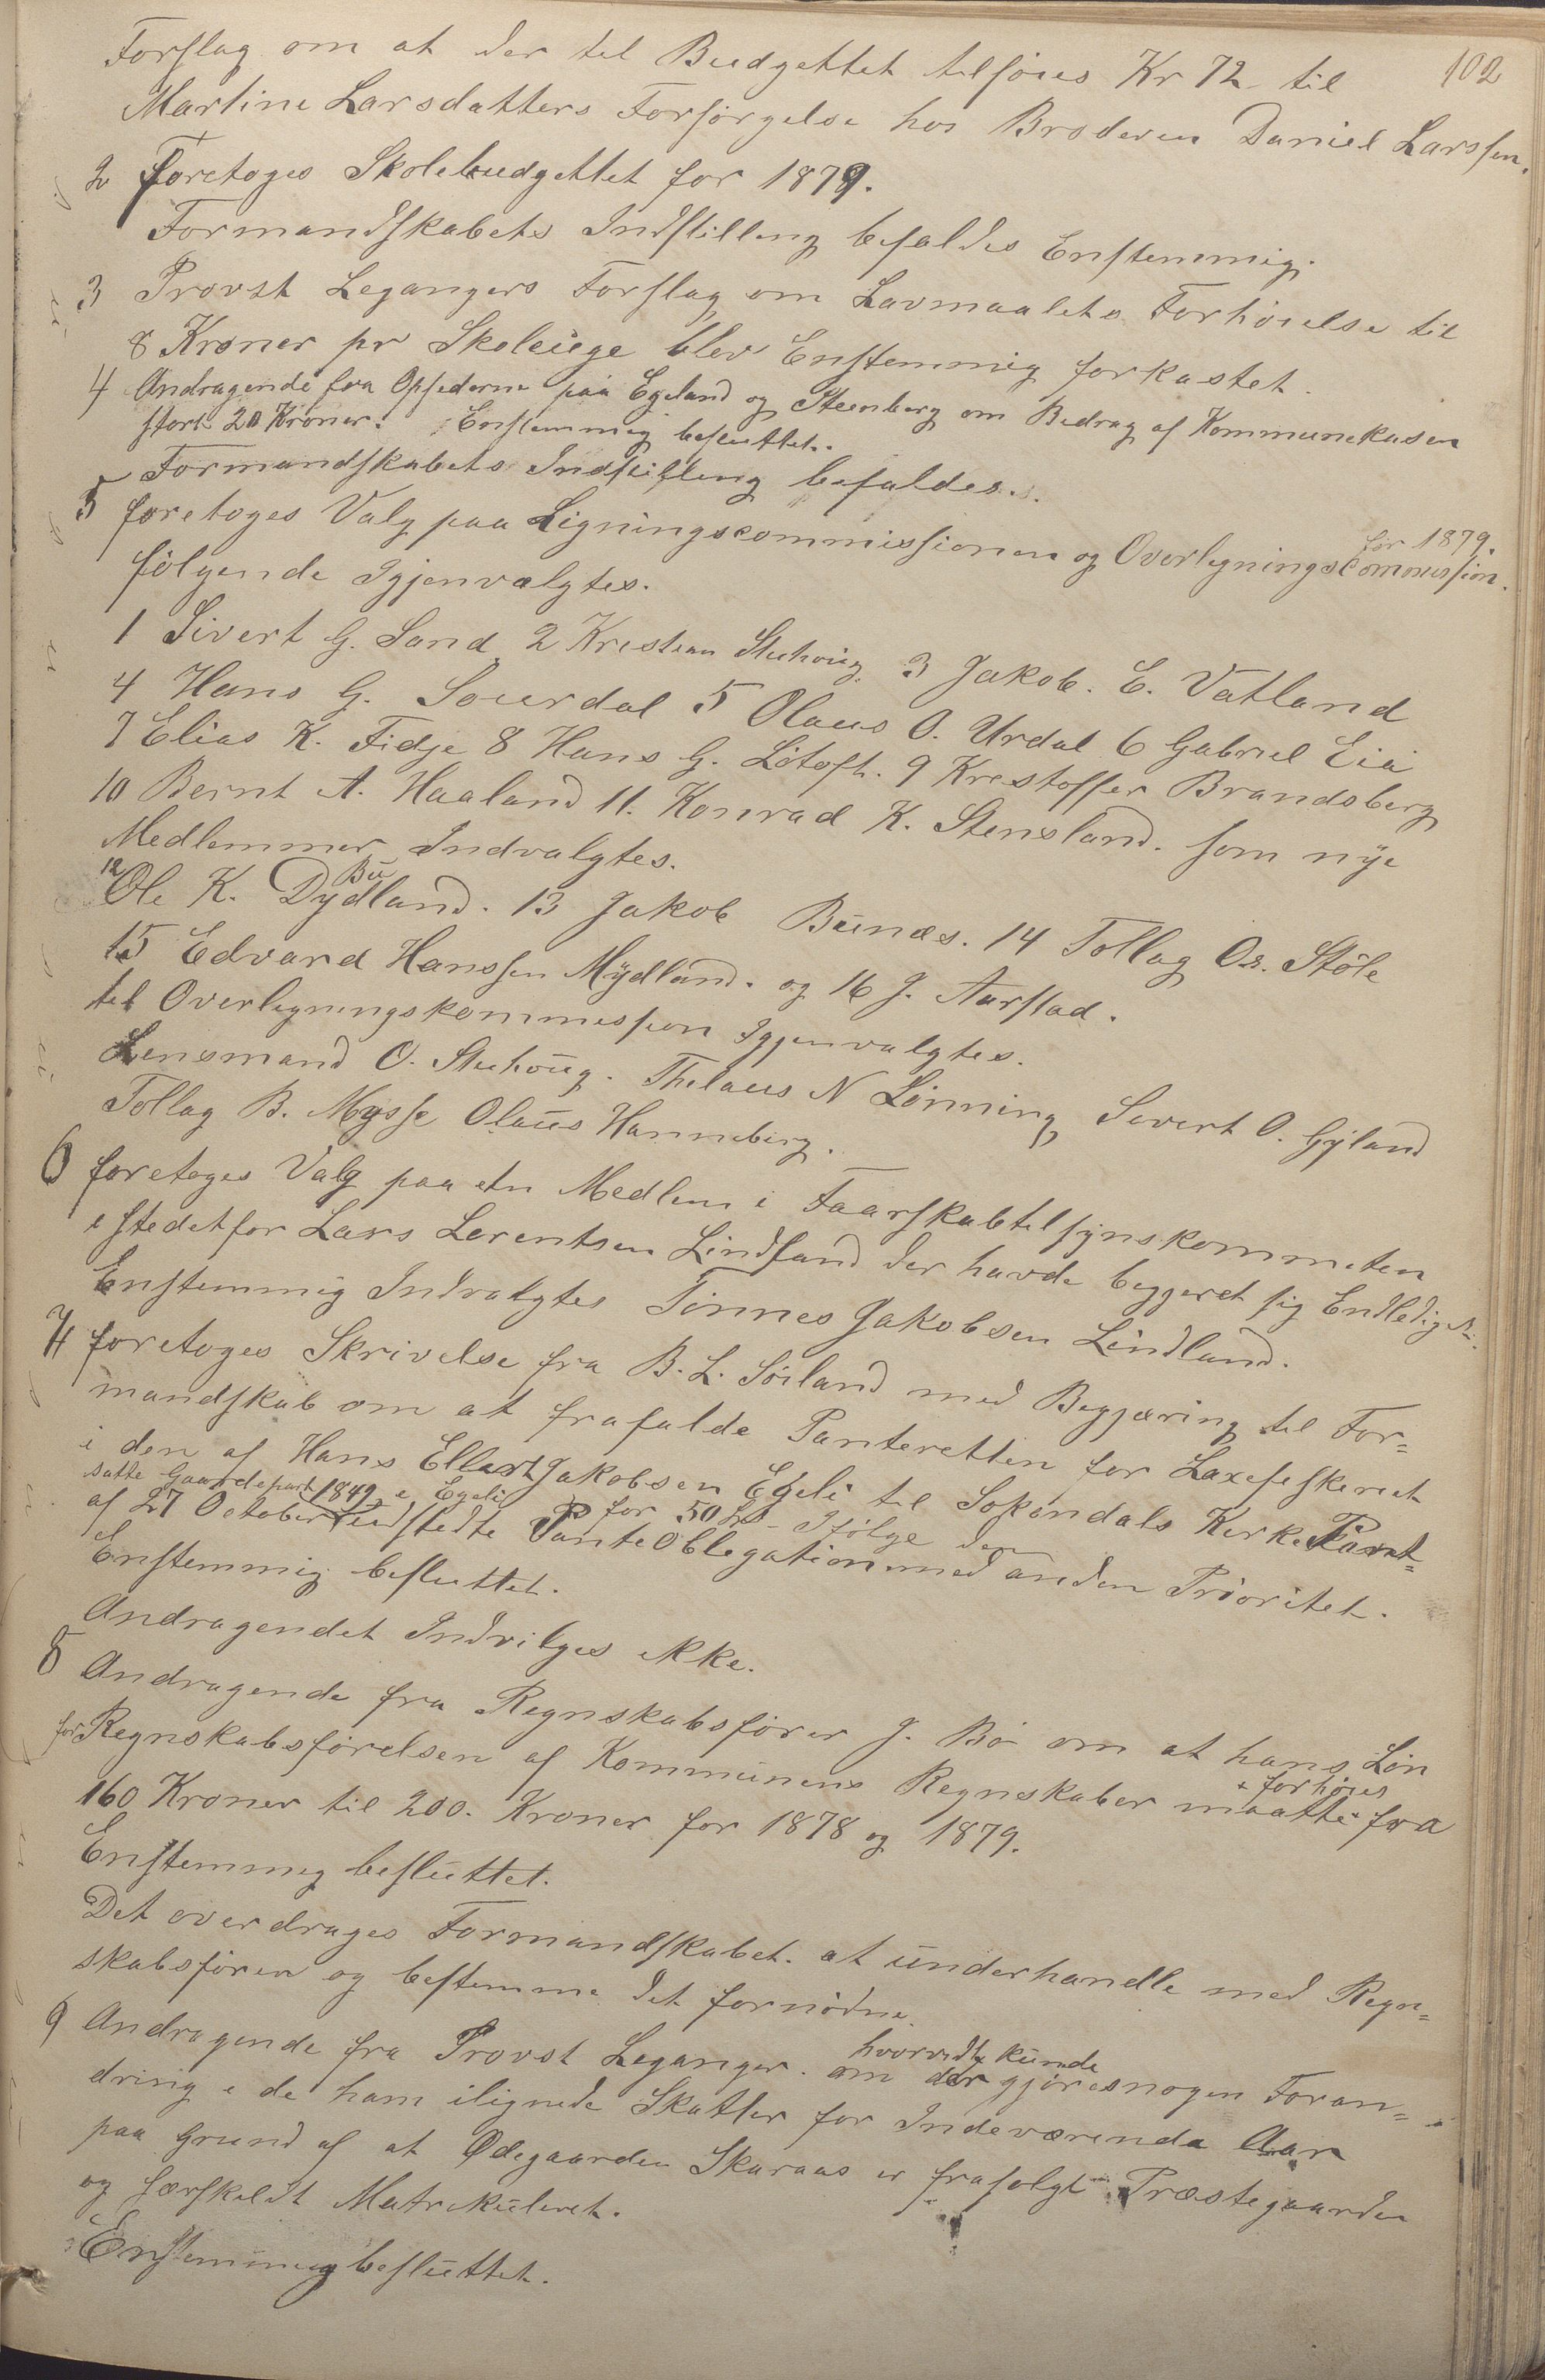 102
Forslag om at der til Budgettet tilføies Kr 72 til
Martine Larsdatters Forsørgelse hos Broderen Daniel Larssen.
2 Foretoges Skolebudgettet for 1879.
Formandskabets Indstilling befaldes Enstemmig.
3 Provst Legangers Forslag om Lavmaalets Forhøielse til
8 Kroner pr Skoleuge blev Enstemmig forkastet.
4 Andragende fra Opsederne paa Egeland og Steenberg om Bedrag af Kommunekasen
stort 20 Kroner. Enstemmig besluttet.
Formandskabets Indstilling befaldes.
5 foretoges Valg paa Ligningscommissionen og Overlegningscommission for 1879.
følgende Igjenvalgtes.
1 Sivert G. Sand 2 Kristian Stuhoug 3 Jakob. E. Vatland
4 Hans G. Sourdal 5 Olaus O. Urdal 6 Gabriel Eia
7 Elias K. Fidje 8 Hans G. Lötoft. 9 Krestoffer Brandsberg
10 Bernt A. Haaland 11. Konrad K. Stensland. som nye
Medlemmer Indvalgtes.
12 Ole K. Bu Dydland. 13 Jakob Bunæs. 14 Tollag Os. Støle
15 Edvard Hanssen Mydland. og 16 J. Aarstad.
til Overlegningskommission Igjenvalgtes.
Lensmand O. Stuhoug. Thelaus N Lønning Sivert O. Gyland
Tollag B. Mysse Olaus Hanneberg.
6 foretoges Valg paa etn Medlem i Faarskabtilsynskommeten
i stedetfor Lars Lorentsen Lindland der havde begjeret sig Endlediget.
Enstemmig Indvalgtes Tönnes Jakobsen Lindland.
7 foretoges Skrivelse fra B. L. Söiland med Begjæring til For=
mandskab om at frafalde Panteretten for Laxefeskeriet
i den af Hans Ellert Jakobsen Egeli til Sokendals Kerke Pant=
satte Gaardepart i Egeli for 50 Ifølge den
af 27 October 1849 udstedte Pante Oblegation med anden Prioritet.
Enstemmig besluttet.
Andragendet Indvilges ikke.
8 Andragende fra Regnskabsfører J. Bö om at hans Løn
for Regnskabsførelsen af Kommunens Regnskaber maatte forhøies fra
160 Kroner til 200. Kroner for 1878 og 1879.
Enstemmig besluttet.
Det overdrages Formandskabet. at underhandle med Regn=
skabsføren og bestemme det fornødne.
9 Andragende fra Provst Leganger. om hvorvidt der kunde gjøres nogen Foran=
dring i de ham ilignede Skatter for Indeværende Aar
paa Grund af at Ødegaarden Skaraas er frasolgt Præstegaarden
og særskildt Matrikuleret.
Enstemmig besluttet.